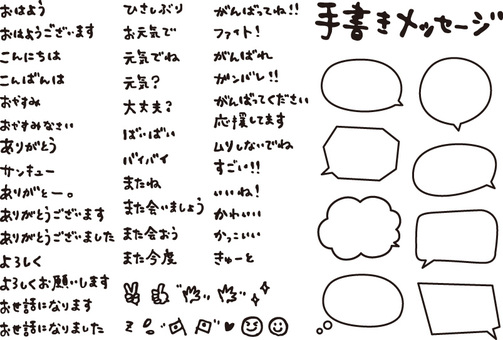 おはよう
おはようございます
こんにちは
こんばんは
おやすみ
おやすみなさい
ありがとう
サンキュー
ありがとー。
ありがとうございます
ありがとうございました
よろしく
よろしくお願いします
お世話になります
お世話になりました
ひさしぶり
お元気で
元気でね
元気?
大丈夫?
ばいばい
バイバイ
またね
また会いましょう
また会おう
また今度
がんばってね!!
ファイト!
がんばれ
ガンバレ!!
がんばってください
応援してます
ムリしないでね
すごい!!
いいね!
かわいい
かっこいい
きゅーと
手書きメッセージ